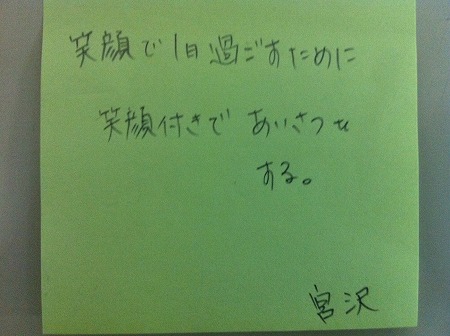 笑顔で1日過ごすために
笑顔付きであいさつを
する。
宮沢